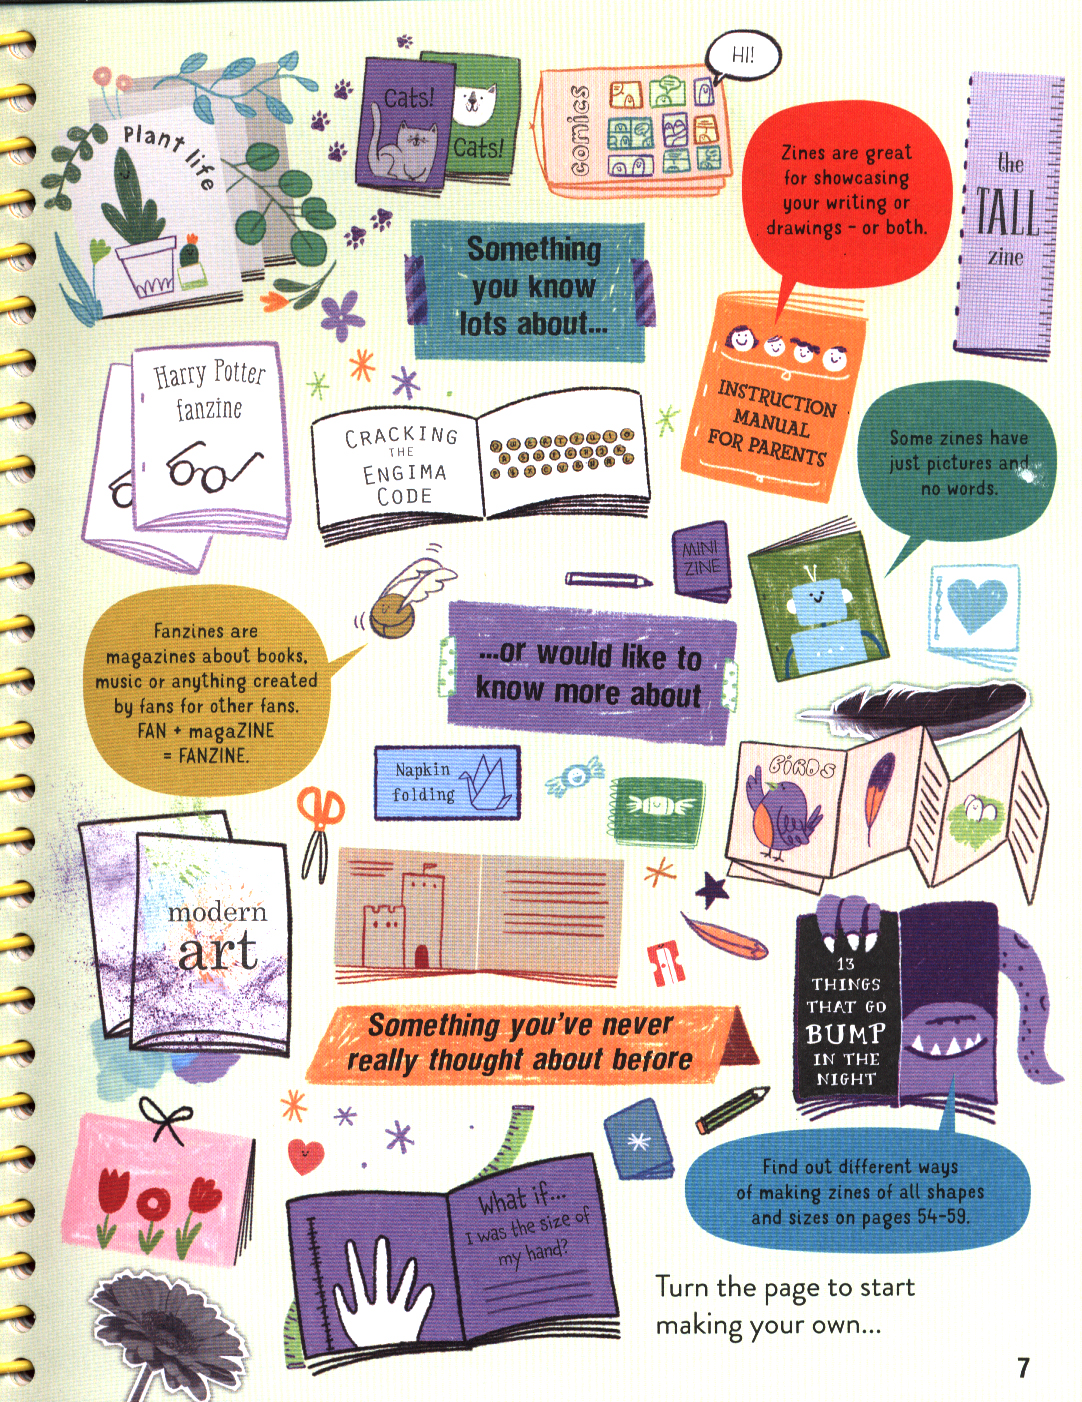 Plant life
Cats!
Cats!
comics
HI!
Zines are great
for showcasing
your writing or
drawings – or both.
the
TALL
zine
Something
you know
lots about...
Harry Potter
fanzine
CRACKING
THE
ENGIMA
CODE
INSTRUCTION
MANUAL
FOR PARENTS
Some zines have
just pictures and
no words.
MINI
ZINE
Fanzines are
magazines about books,
music or anything created
by fans for other fans.
FAN + magaZINE
= FANZINE.
...or would like to
know more about
Napkin
folding
BIRDS
modern
art
13
THINGS
THAT GO
BUMP
IN THE
NIGHT
Something you've never
really thought about before
What if...
I was the size of
my hand?
Find out different ways
of making zines of all shapes
and sizes on pages 54-59.
Turn the page to start
making your own...
7